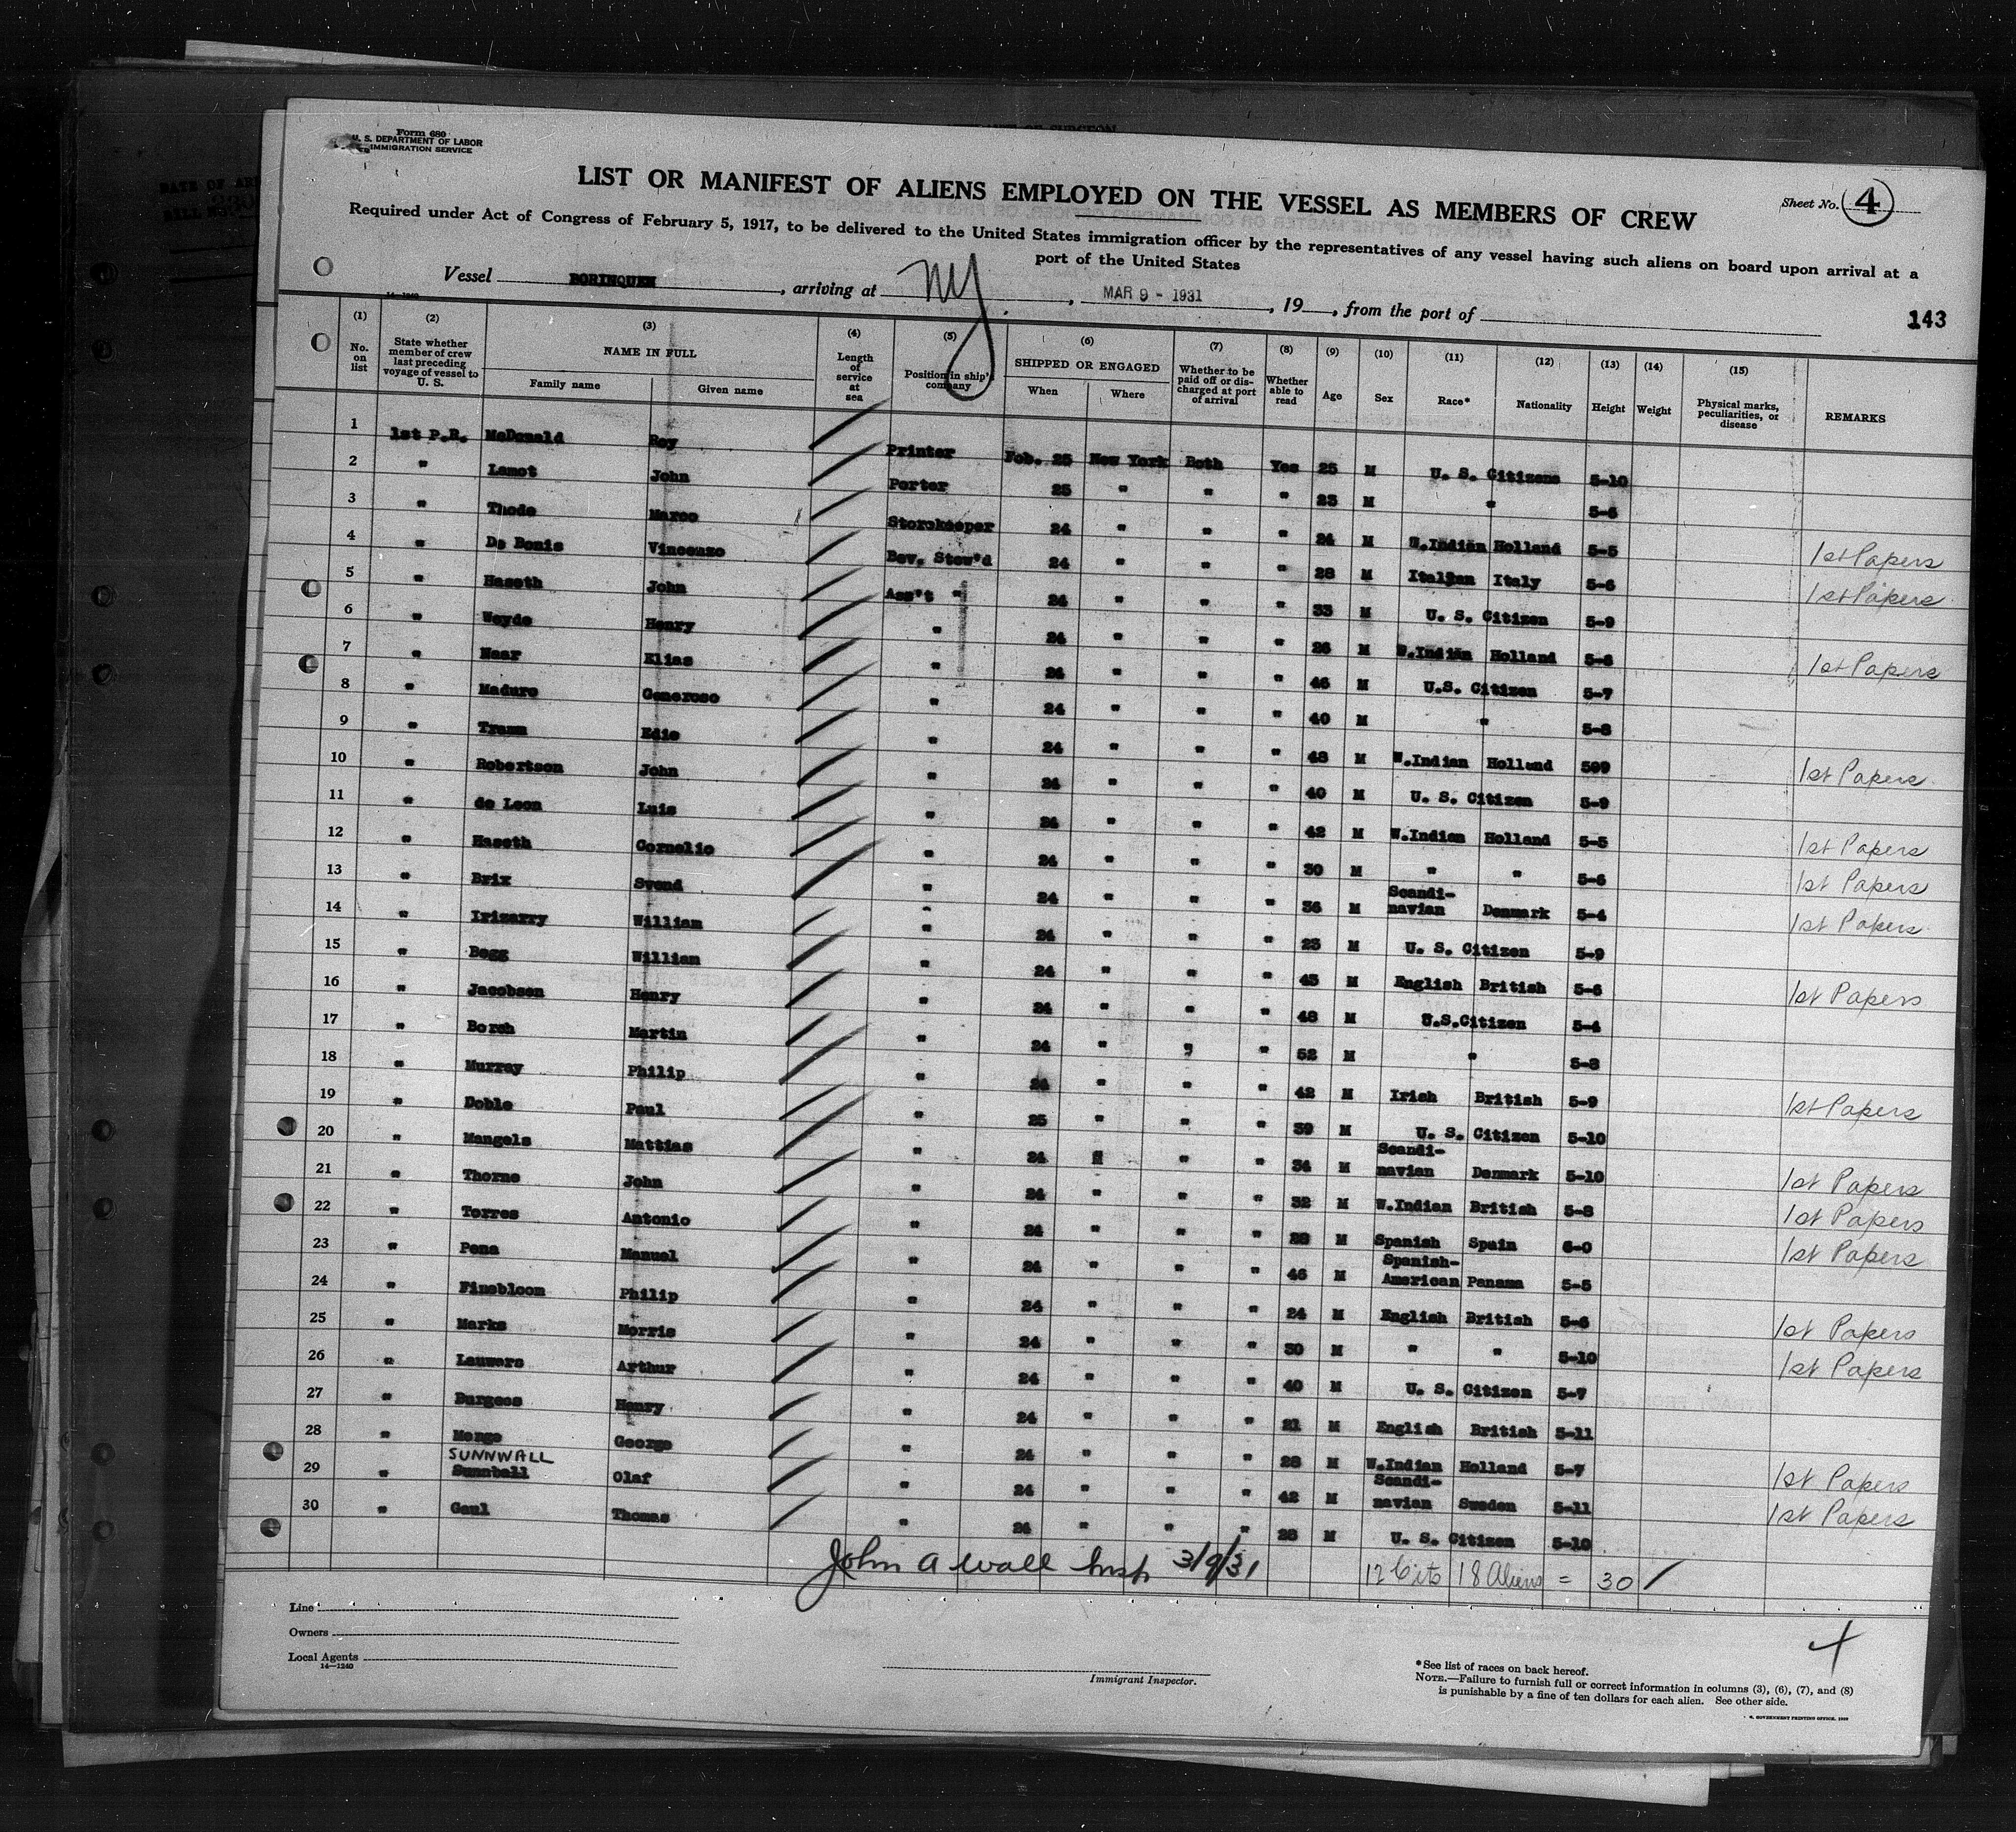 Form 680
U. S. DEPARTMENT OF LABOR
IMMIGRATION SERVICE
LIST OR MANIFEST OF ALIENS EMPLOYED ON THE VESSEL AS MEMBERS OF CREW
Sheet No. 4
Required under Act of Congress of February 5, 1917, to be delivered to the United States immigration officer by the representatives of any vessel having such aliens on board upon arrival at a
port of the United States
Vessel BORINQUEN, arriving at NY, MAR 9 - 1931, 19, from the port of
143
(1) No. on list (2) State whether member of crew last preceding voyage of vessel to U. S. (3) NAME IN FULL Family name Given name (4) Length of service at sea (5) Position in ship's company (6) SHIPPED OR ENGAGED When Where (7) Whether to be paid off or discharged at port of arrival (8) Whether able to read (9) Age (10) Sex (11) Race* (12) Nationality (13) Height (14) Weight (15) Physical marks, peculiarities, or disease REMARKS
1 1st P.R. McDonald Roy Printer Feb. 25 New York Both Yes 25 M U. S. Citizens 5-10
2 " Lamot John Porter 25 " " " 23 M " 5-6
3 " Thode Marco Storekeeper 24 " " " 24 M W.Indian Holland 5-5 1st Papers
4 " De Bonis Vincenzo Bev. Stew'd 24 " " " 28 M Italian Italy 5-6 1st Papers
5 " Haseth John Ass't " 24 " " " 33 M U. S. Citizen 5-9
6 " Weyde Henry " 24 " " " 26 M W.Indian Holland 5-6 1st Papers
7 " Naar Elias " 24 " " " 46 M U.S. Citizen 5-7
8 " Maduro Generoso " 24 " " " 40 M " 5-8
9 " Tramm Edie " 24 " " " 48 M W.Indian Holland 509 1st Papers
10 " Robertson John " 24 " " " 40 M U. S. Citizen 5-9
11 " de Leon Luis " 24 " " " 42 M W.Indian Holland 5-5 1st Papers
12 " Haseth Cornelio " 24 " " " 30 M " " 5-6 1st Papers
13 " Brix Svend " 24 " " " 36 M Scandi-navian Denmark 5-4 1st Papers
14 " Irizarry William " 24 " " " 23 M U. S. Citizen 5-9
15 " Begg William " 24 " " " 45 M English British 5-6 1st Papers
16 " Jacobsen Henry " 24 " " " 48 M U.S.Citizen 5-4
17 " Borch Martin " 24 " " " 52 M " 5-8
18 " Murray Philip " 24 " " " 42 M Irish British 5-9 1st Papers
19 " Doble Paul " 25 " " " 39 M U. S. Citizen 5-10
20 " Mangels Mattias " 24 " " " 34 M Scandi-navian Denmark 5-10 1st Papers
21 " Thorne John " 24 " " " 32 M W.Indian British 5-8 1st Papers
22 " Torres Antonio " 24 " " " 28 M Spanish Spain 6-0 1st Papers
23 " Pena Manuel " 24 " " " 46 M Spanish-American Panama 5-5
24 " Finebloom Philip " 24 " " " 24 M English British 5-6 1st Papers
25 " Marks Morris " 24 " " " 30 M " " 5-10 1st Papers
26 " Lauwers Arthur " 24 " " " 40 M U. S. Citizen 5-7
27 " Burgess Henry " 24 " " " 21 M English British 5-11
28 " George " 24 " " " 28 M W.Indian Holland 5-7 1st Papers
SUNNWALL
29 " Sunnball Olaf " 24 " " " 42 M Scandi-navian Sweden 5-11 1st Papers
30 " Gaul Thomas " 24 " " " 26 M U. S. Citizen 5-10
John A Wall Insp 3/9/31 12 Cits 18 Aliens = 30
Line
Owners
Local Agents
14—1240
Immigrant Inspector.
*See list of races on back hereof.
NOTE.—Failure to furnish full or correct information in columns (3), (6), (7), and (8)
is punishable by a fine of ten dollars for each alien. See other side.